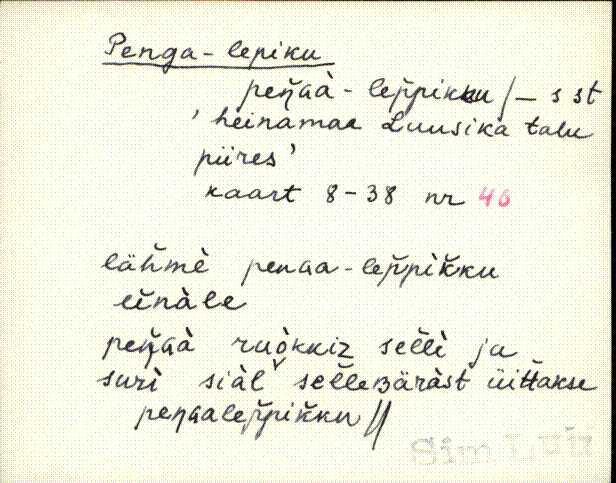 Penga-lepiku
peŋ̆ɢà - lep̆pikku /– s st
' heinamaa Luusika talu
piires '
kaart 8-38 nr 46
läh̆mè peŋɢa-lep̆pik̆ku
ĕinàle
peŋ̆ɢà ruòkkiz sel̆lè ja
suri siàl sel̆leᴣäràst üit̆takse
peŋɢalep̆pik̆ku //
Sim Luu